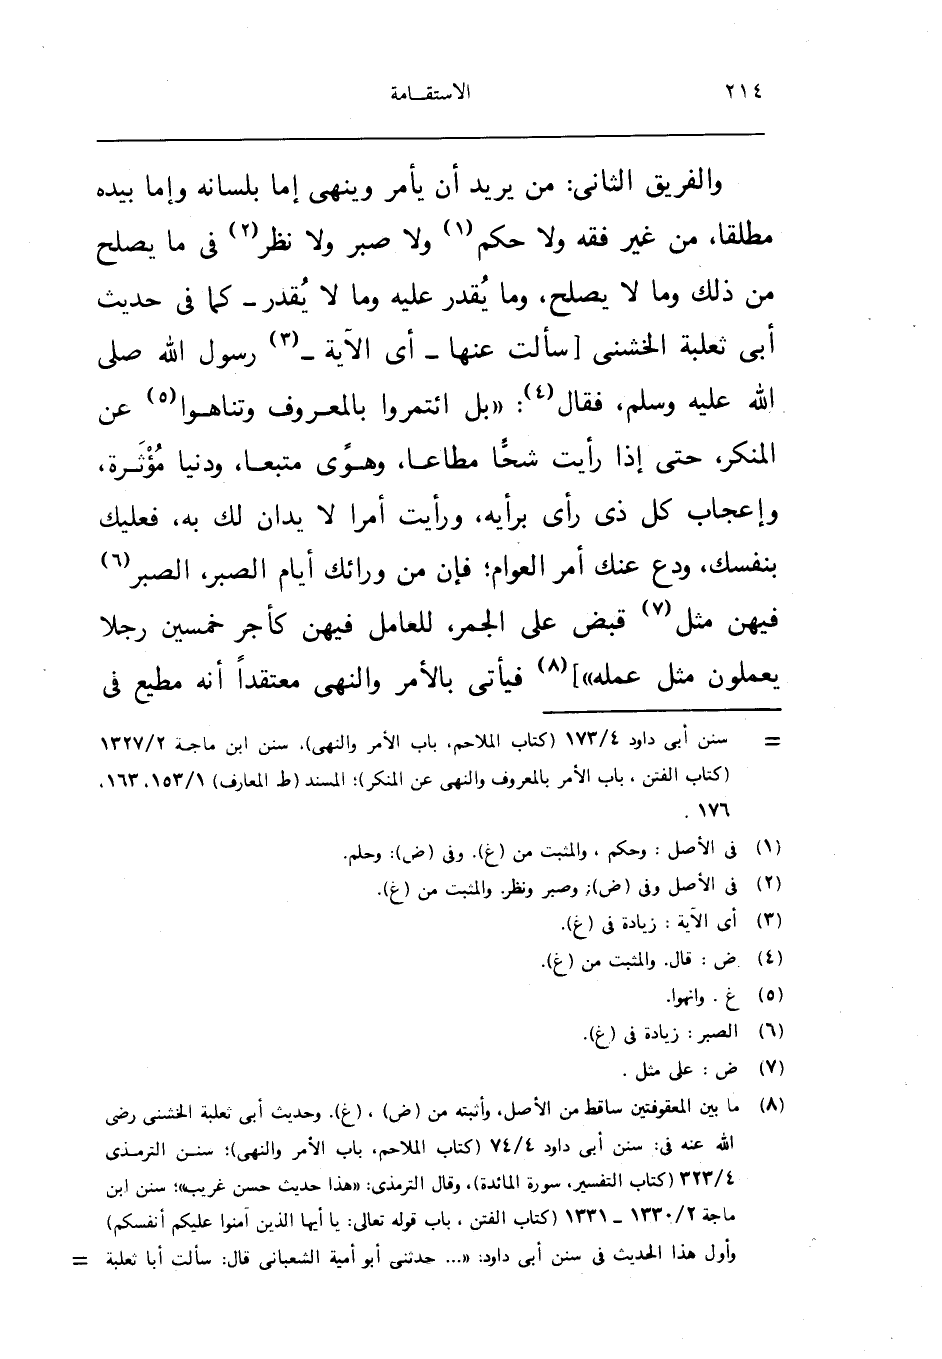 ٢١٤ الاستقـامة
والفريق الثانى: من يريد أن يأمر وينهى إما بلسانه وإما بيده
مطلقا، من غير فقه ولا حكم(١) ولا صبر ولا نظر(٢) فى ما يصلح
من ذلك وما لا يصلح، وما يُقدر عليه وما لا يُقدر ـ كما فى حديث
أبى ثعلبة الخشنى [سألت عنها ـ أى الآية ـ(٣) رسول الله صلى
الله عليه وسلم، فقال(٤): «بل ائتمروا بالمعـروف وتناهـوا(٥) عن
المنكر، حتى إذا رأيت شحًّا مطاعـا، وهـوًى متبعـا، ودنيا مُؤْثَـرة،
وإعجاب كل ذى رأى برأيه، ورأيت أمرا لا يدان لك به، فعليك
بنفسك، ودع عنك أمر العوام؛ فإن من ورائك أيام الصبر، الصبر(٦)
فيهن مثل(٧) قبض على الجمر، للعامل فيهن كأجر خمسين رجلا
يعملون مثل عمله»](٨) فيأتى بالأمر والنهى معتقداً أنه مطيع فى
= سنن أبى داود ١٧٣/٤ (كتاب الملاحم، باب الأمر والنهى)، سنن ابن ماجـة ١٣٢٧/٢
(كتاب الفتن ، باب الأمر بالمعروف والنهى عن المنكر)؛ المسند (ط المعارف) ١٥٣/١، ١٦٣،
١٧٦ .
(١) فى الأصل : وحكم ، والمثبت من (غ). وفى (ض): وحلم.
(٢) فى الأصل وفى (ض): وصبر ونظر. والمثبت من (غ).
(٣) أى الآية : زيادة فى (غ).
(٤) ض : قال. والمثبت من (غ).
(٥) غ . وانهوا.
(٦) الصبر : زيادة فى (غ).
(٧) ض : على مثل .
(٨) ما بين المعقوفتين ساقط من الأصل، وأثبته من (ض) ، (غ). وحديث أبى ثعلبة الخشنى رضى
الله عنه فى: سنن أبى داود ٧٤/٤ (كتاب الملاحم، باب الأمر والنهى)؛ سنـن الترمـذى
٣٢٣/٤ (كتاب التفسير، سورة المائدة)، وقال الترمذى: «هذا حديث حسن غريب»؛ سنن ابن
ماجة ١٣٣٠/٢ ـ ١٣٣١ (كتاب الفتن ، باب قوله تعالى: يا أيها الذين آمنوا عليكم أنفسكم)
وأول هذا الحديث فى سنن أبى داود: «... حدثنى أبو أمية الشعبانى قال: سألت أبا ثعلبة =